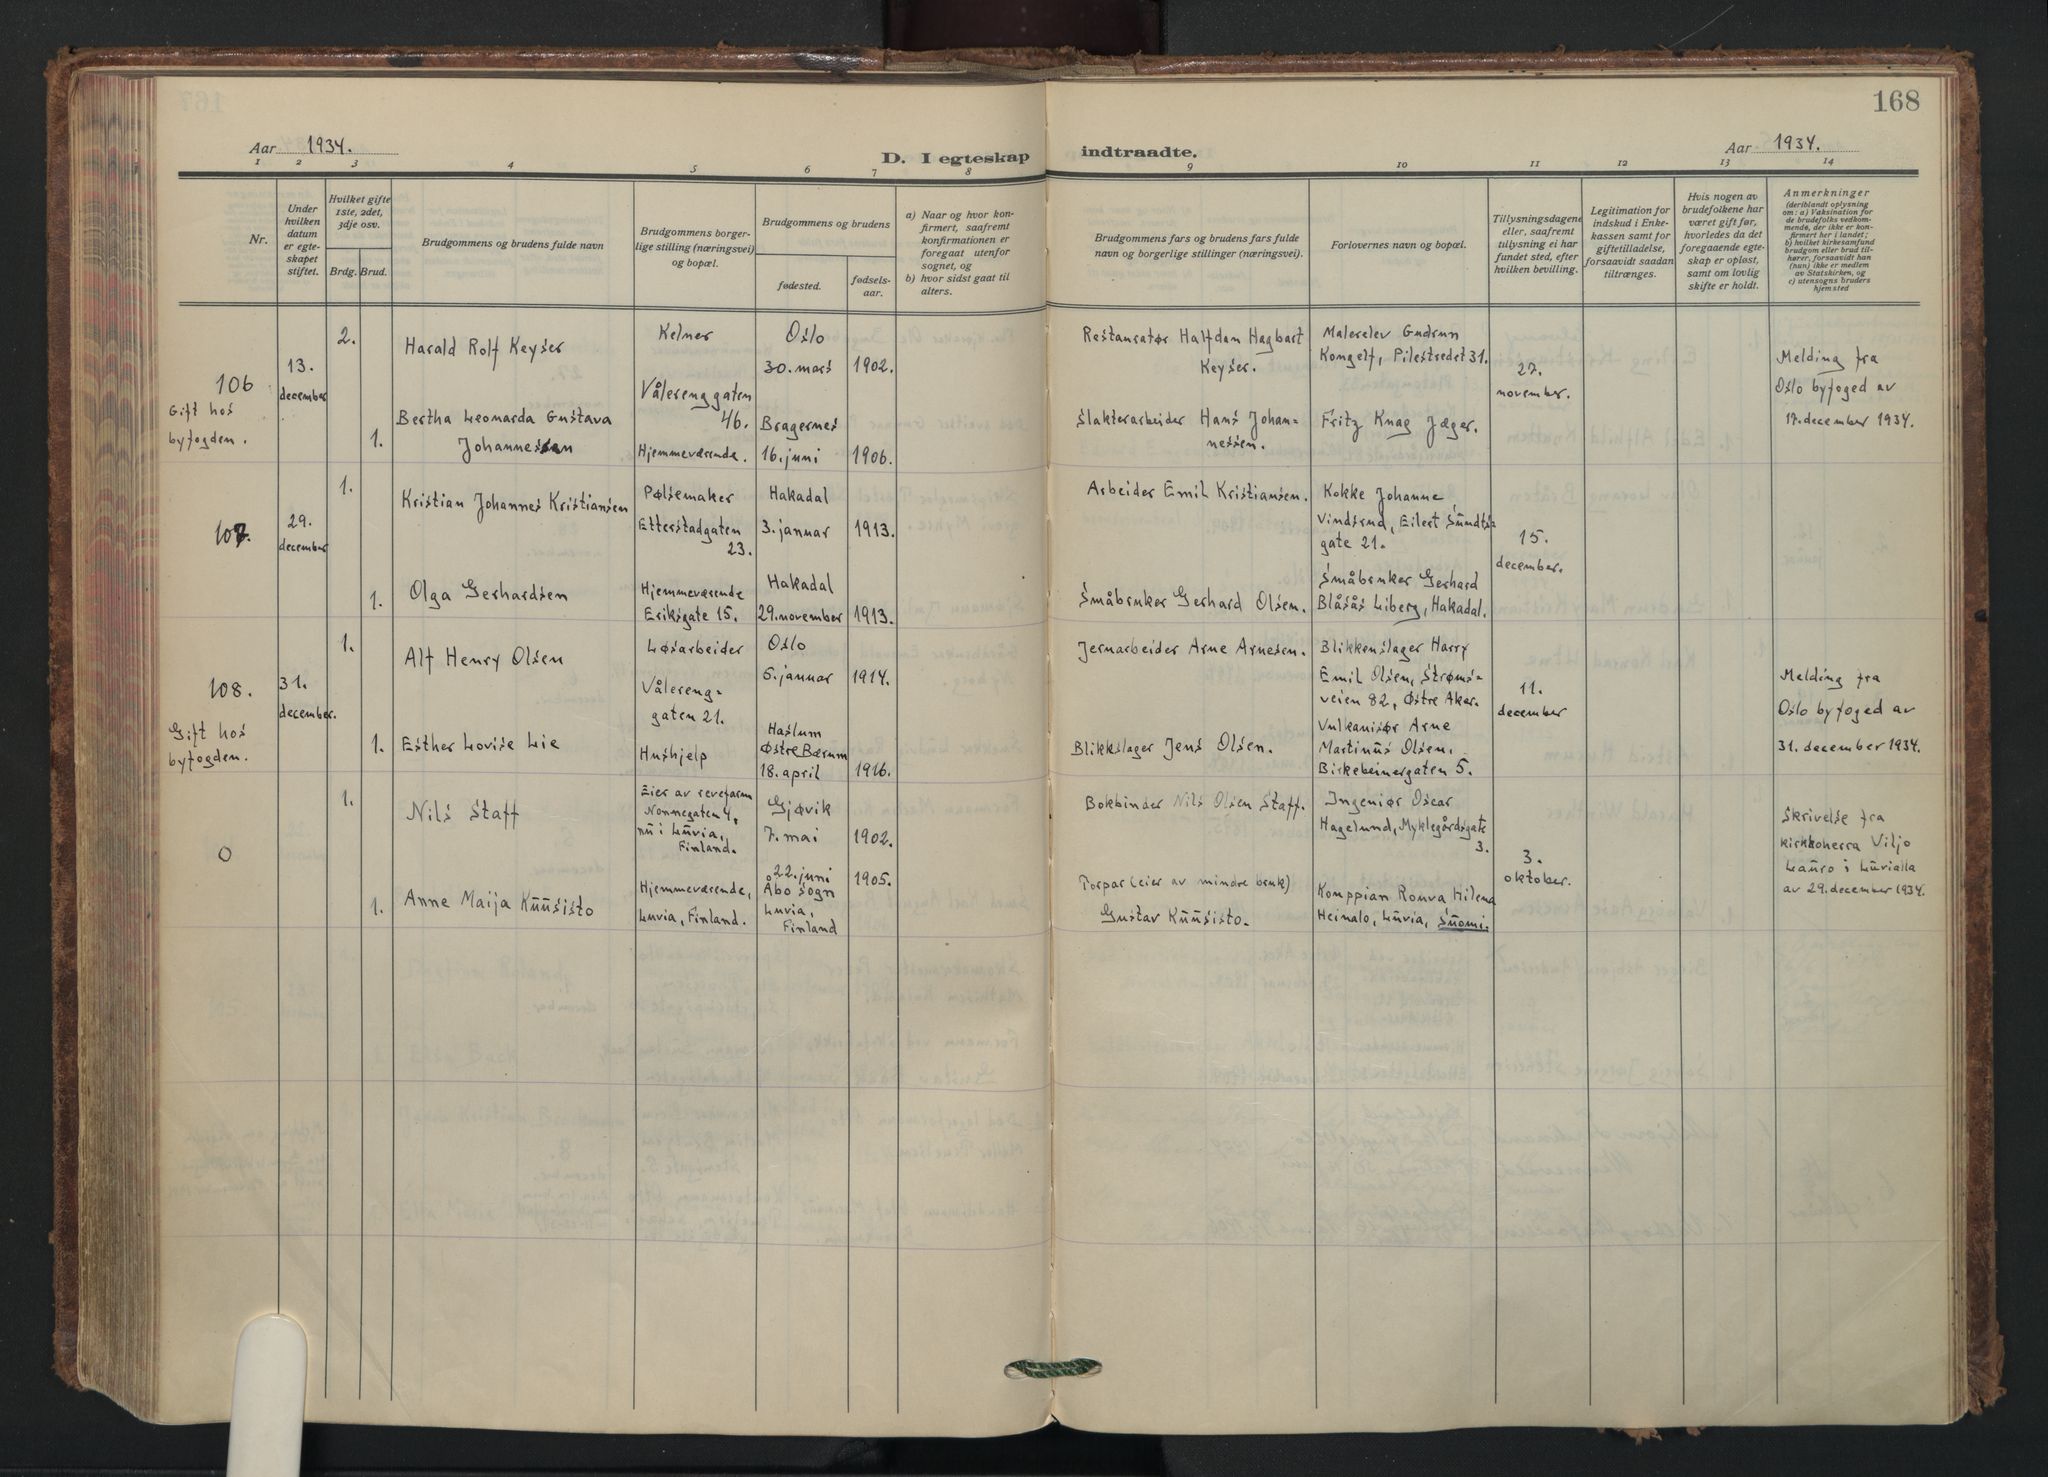 168
Aar 1934.
D. I egteskap indtraadte.
Aar 1934.
1 2 3 4 5 6 7 8 9 10 11 12 13 14
Nr.
Under hvilken datum er egteskapet stiftet.
Hvilket gifte 1ste, 2det, 3dje osv.
Brdg. Brud.
Brudgommens og brudens fulde navn
Brudgommens borgerlige stilling (næringsvei) og bopæl.
Brudgommens og brudens
fødested.
fødselsaar.
a) Naar og hvor konfirmert, saafremt konfirmationen er foregaat utenfor sognet, og
b) hvor sidst gaat til alters.
Brudgommens fars og brudens fars fulde navn og borgerlige stillinger (næringsvei).
Forlovernes navn og bopæl.
Tillysningsdagene eller, saafremt tillysning ei har fundet sted, efter hvilken bevilling.
Legitimation for indskud i Enkekassen samt for giftetilladelse, forsaavidt saadan tiltrænges.
Hvis nogen av brudefolkene har været gift før, hvorledes da det foregaaende egteskap er opløst, samt om lovlig skifte er holdt.
Anmerkninger
(deriblandt oplysning om: a) Vaksination for de brudefolks vedkommende, der ikke er konfirmert her i landet;
b) hvilket kirkesamfund brudgom eller brud tilhører, forsaavidt han (hun) ikke er medlem av Statskirken, og
c) utensogns bruders hjemsted
106
Gift hos
byfogden.
13.
december
2.
Harald Rolf Keyser
Kelner
Vålerenggaten
46.
Oslo
30. mars
1902.
Restauratør Halfdan Hagbart
Keyser.
Malerelev Gudrun
Kongelf, Pilestredet 31.
27.
november.
Melding fra
Oslo byfoged av
17. december 1934.
1.
Bertha Leonarda Gustava
Johannessen
Hjemmeværende.
Bragernes
16. juni
1906.
Slakterarbeider Hans Johan-
nessen.
Fritz Knag Jæger.
107.
29.
december
1.
Kristian Johannes Kristiansen
Pølsemaker
Etterstadgaten
23.
Hakadal
3. januar
1913.
Arbeider Emil Kristiansen.
Kokke Johanne
Vindsrud, Eilert Sundts-
gate 21.
15.
december.
1.
Olga Gerhardsen
Hjemmeværende
Eriksgate 15.
Hakadal
29. november
1913.
Småbruker Gerhard Olsen.
Småbruker Gerhard
Blåsås Liberg, Hakadal.
108.
Gift hos
byfogden.
31.
december.
1.
Alf Henry Olsen
Løsarbeider
Vålereng-
gaten 21.
Oslo
6. januar
1914.
Jernarbeider Arne Arnesen.
Blikkenslager Harry
Emil Olsen, Strøms-
veien 82, Østre Aker.
11.
december
Melding fra
Oslo byfoged av
31. december 1934.
1.
Esther Lovise Lie
Hushjelp
Haslum
Østre Bærum
18. april
1916.
Blikkslager Jens Olsen.
Vulkanisør Arne
Martinus Olsen,
Birkebeinergaten 5.
0
1.
Nils Staff
Eier av revefarm
Nonnegaten 4,
nu i Luvia,
Finland.
Gjøvik
7. mai
1902.
Bokbinder Nils Olsen Staff.
Ingeniør Oscar
Hagelund, Myklegårdsgate
3.
3.
oktober.
Skrivelse fra
kirkkoherra Viljo
Lauro i Luvialla
av 29. december 1934.
1.
Anne Maija Kuusisto
Hjemmeværende,
Luvia, Finland.
22. juni
Åbo sogn
Luvia,
Finland
1905.
Torpar (eier av mindre bruk)
Gustav Kuusisto.
Komppian Rouva Hilena
Heinalo, Luvia, Suomi.